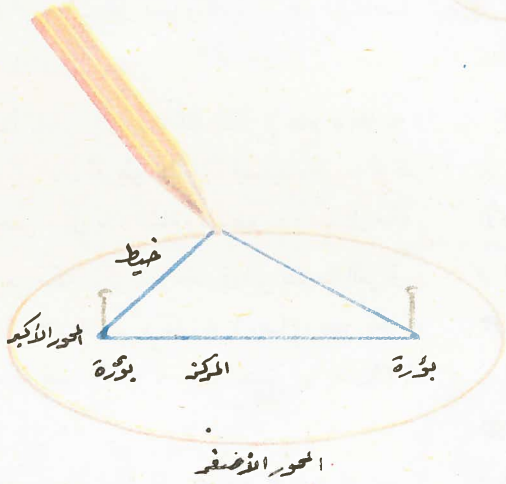 خيط
المحور الأكبر
بؤرة
المركز
بؤرة
المحور الأصغر